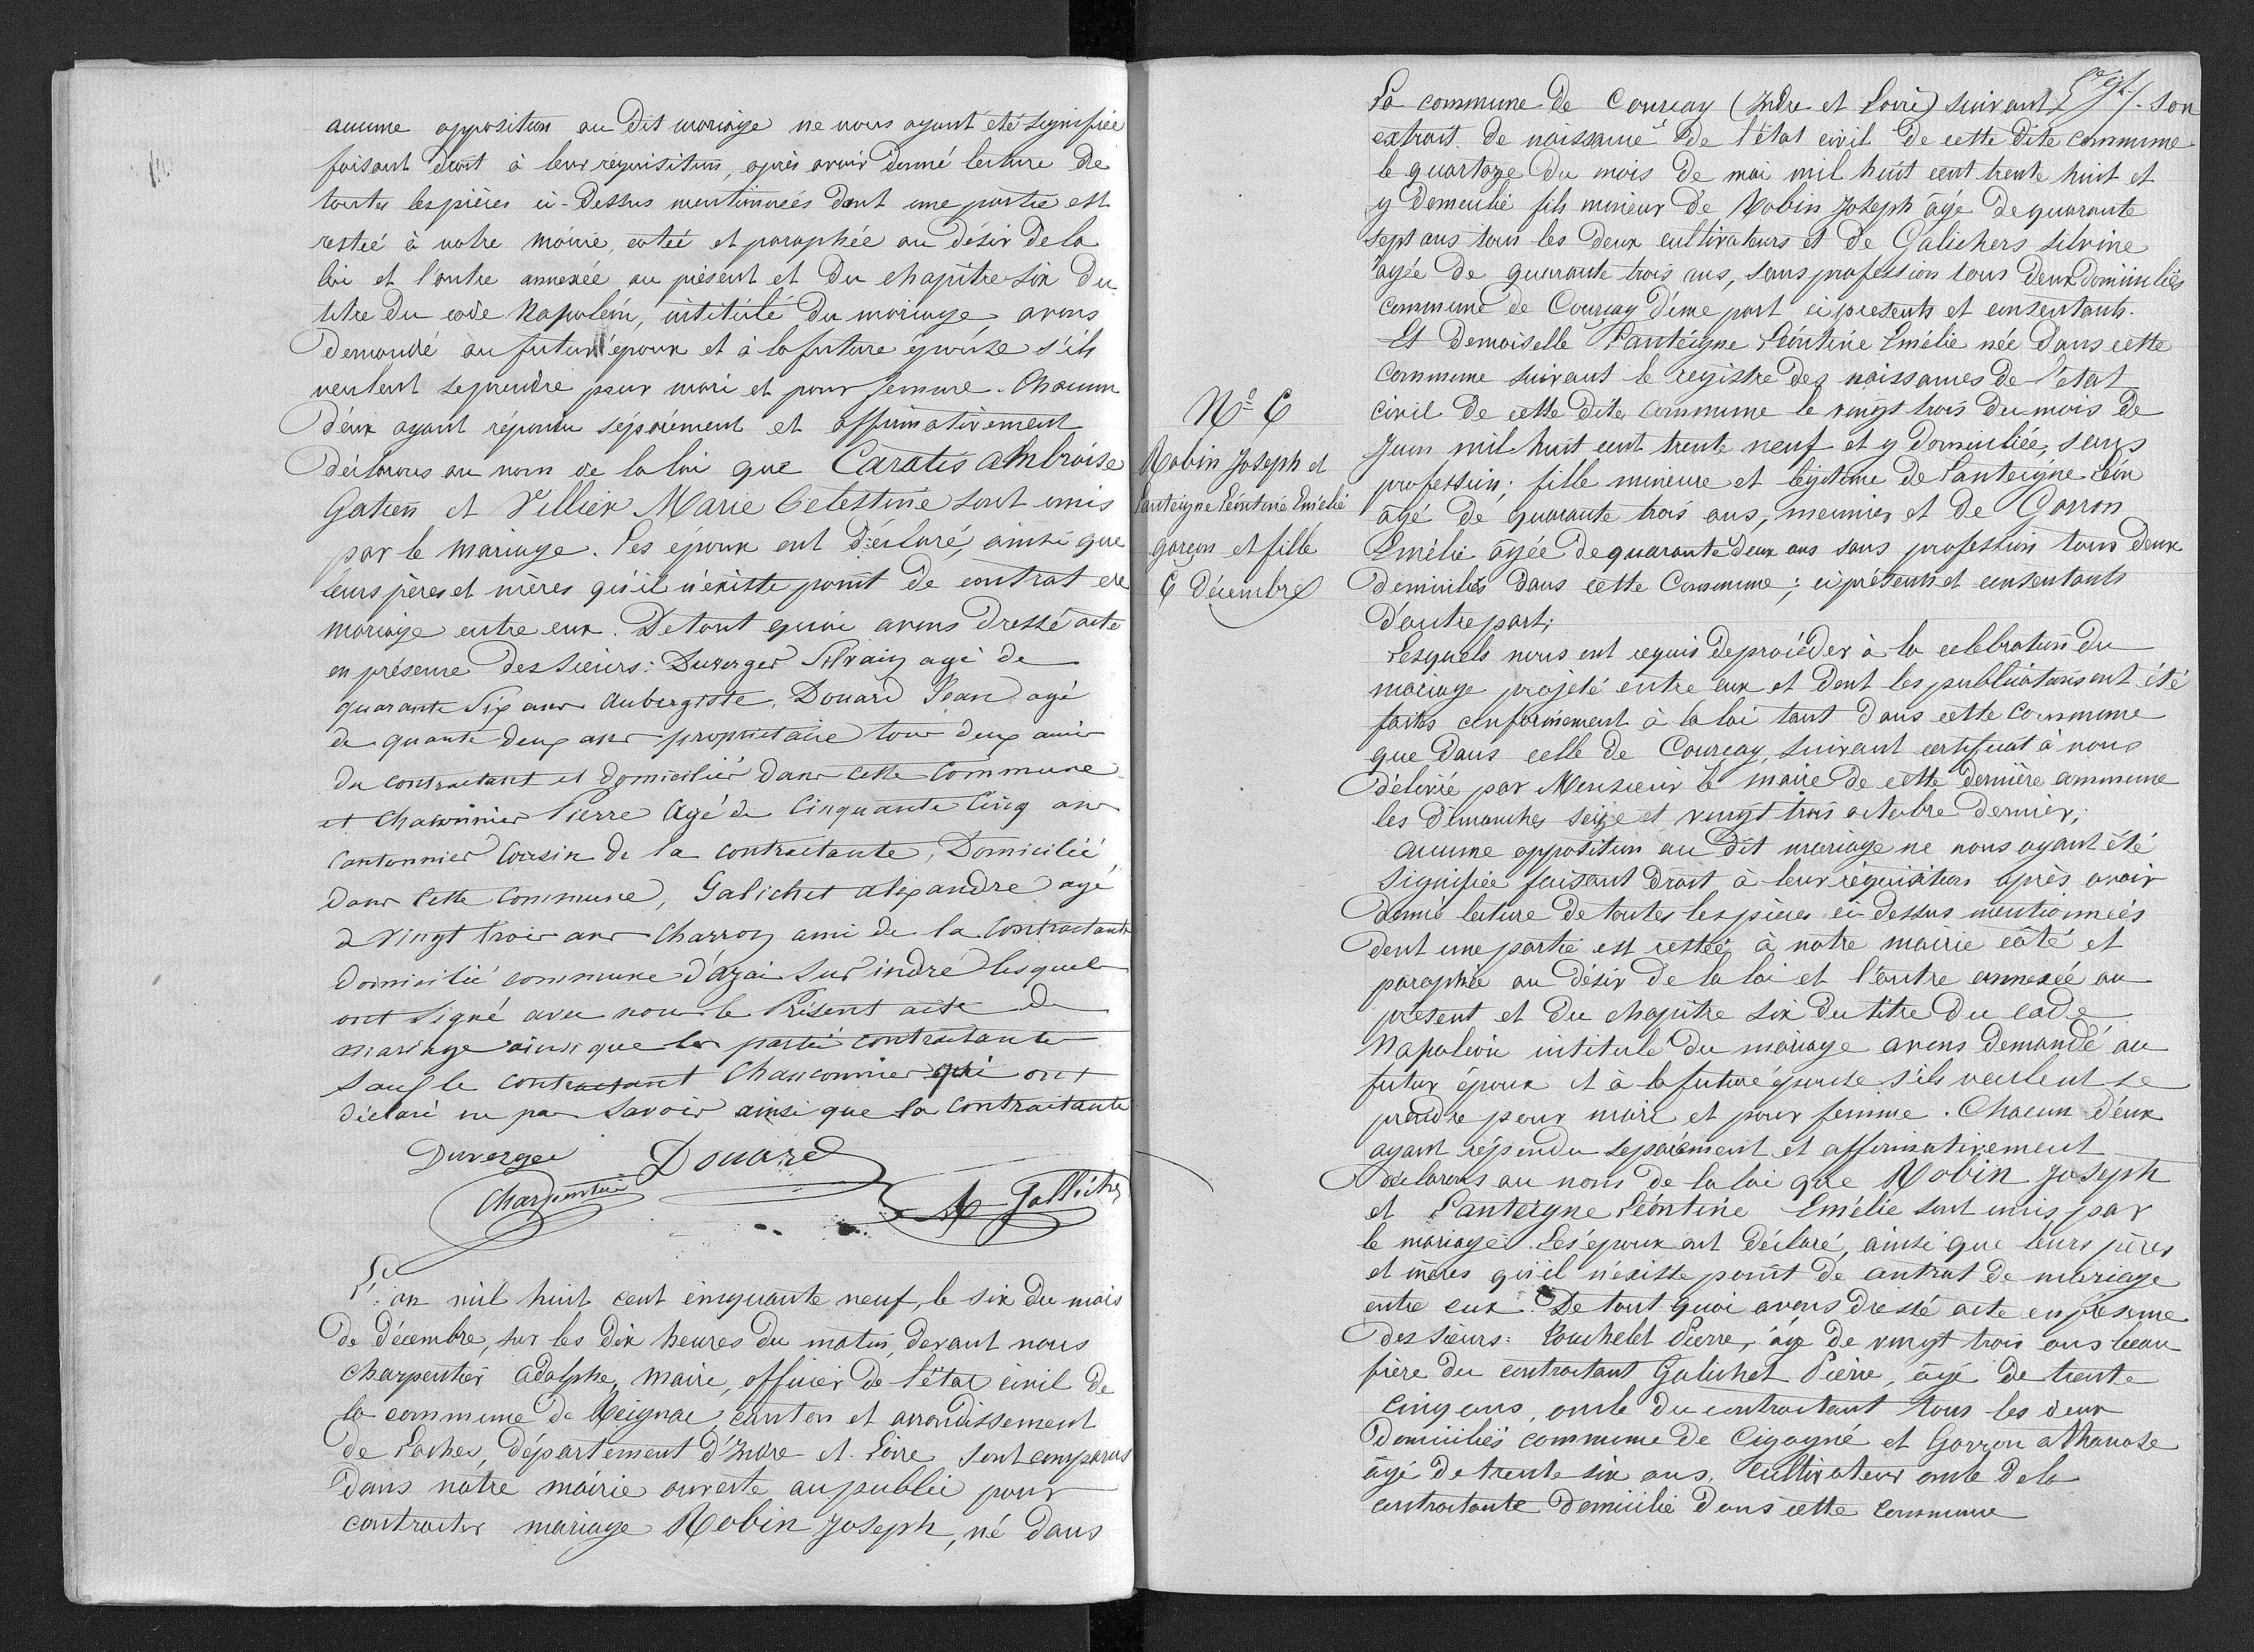 aucune opposition au dit mariage ne nous ayant été signifiée
faisant droit à leur réquisition, après avoir donné lecture de
toutes les pièces ci-dessus mentionnées dont une partie est
restée à notre mairie, cotée et paraphée au désir de la
loi et l'autre annexée au présent et du chapitre six du
titre du code Napoléon, intitulé du mariage, avons
demandé au futur époux et à la future épouse s'ils
veulent se prendre pour mari et pour femme. Chacun
d'eux ayant répondu séparément et affirmativement
déclarons au nom de la loi que Caratis Ambroise
Gatien et Vellier Marie Celestine sont unis
par le mariage. Les époux ont déclaré, ainsi que
leurs pères et mères qu'il n'existe point de contrat de
mariage entre eux. De tout quoi avons dressé acte
en présence des sieurs: Duverger Silvain agé de
quarante six ans aubergiste, Douard Jean agé
de quante deux ans propriétaire tous deux amis
du contractant et domiciliés dans cette commune
et Chauvinier Pierre agé de cinquante cinq ans
cantonnier cousin de la contractante, Domicilié
dans cette commune, Galichet alexandre agé
de vingt trois ans charron ami de la contractante
domicilié commune d'azai sur indre lesquels
ont signé avec nous le Présent acte de
mariage ainsi que les partie contractante
sauf le contractant Chauconnier qui ont
déclaré ne pas savoir ainsi que la contractante
Duverger Douard
Charpentier A Gallichet
L'an mil huit cent cinquante neuf, le six du mois
de décembre, sur les dix heures du matin, devant nous
Charpentier Adolphe, maire, officier de l'état civil de
la commune de Reignac, canton et arrondissement
de Loches, département d'Indre-et-Loire sont comparus
dans notre mairie ouverte au public pour
contracter mariage Robin Joseph, né dans
Nº 6
Robin Joseph et
Lanteigne Léontine Emélie
garçon et fille
6 Décembre
La commune de Courçay (Indre et Loire) suivant son
extrait de naissance de l'état civil de cette dite commune
le quartoze du mois de mai mil huit cent trente huit et
y domeulié fils mineur de Robin Joseph âgé de quarante
sept ans tous les deux cultivateurs et de Galichers Silvine
agée de quarante trois ans, sans profession tous deux domiciliés
commune de Courçay d'une part ci présents et consentants.
Et demoiselle Lanteigne Léontine Emélie née dans cette
commune suivant le registre des naissances de l'etat
civil de cette dite commune le vingt trois du mois de
Juin mil huit cent trente neuf et y domiciliée, sans
profession; fille mineure et légitime de Lanteigne Léon
âgé de quarante trois ans, meunier et de Gorron
Emélie âgée de quarante deux ans sans profession tous deux
domiciliés dans cette Commune; ci présents et consentants
d'autre part;
Lesquels nous ont requis de procéder à la celebration du
mariage projeté entre eux et dont les publications ont été
faites conformément à la loi tant dans cette commune
que dans celle de Courçay, suivant certificat à nous
délivré par Monsieur le maire de cette dernière commune
les dimanches seize et vingt trois octobre dernier;
aucune opposition au dit mariage ne nous ayant été
signifiée faisant droit à leur réquisition après avoir
donné lecture de toutes les pièces ci-dessus mentionnées
dont une partie est restée à notre mairie côté et
paraphée au désir de la loi et l'autre annexée au
présent et du chapitre six du titre du code
Napoléon intitulé du mariage avons demandé au
futur époux et à la future épouse s'ils veulent se
prendre pour mari et pour femme. Chacun d'eux
ayant répondu separément et affirmativement
déclarons au nom de la loi que Robin Joseph
et Lanteigne Léontine Emélie sont unis par
le mariage. Les époux ont déclaré, ainsi que leurs pères
et mères qu'il n'existe point de contrat de mariage
entre eux. De tout quoi avons dressé acte en présence
des sieurs: Bouchelet Pierre, agé de vingt trois ans beau
frère du contractant Galichet Pierre, âgé de trente
cinq ans, oncle du contractant tous les deux
domiciliés commune de Cigogné et Gorron athanase
âgé de trente six ans, cultivateur oncle de la
contractante domicilié dans cette commune